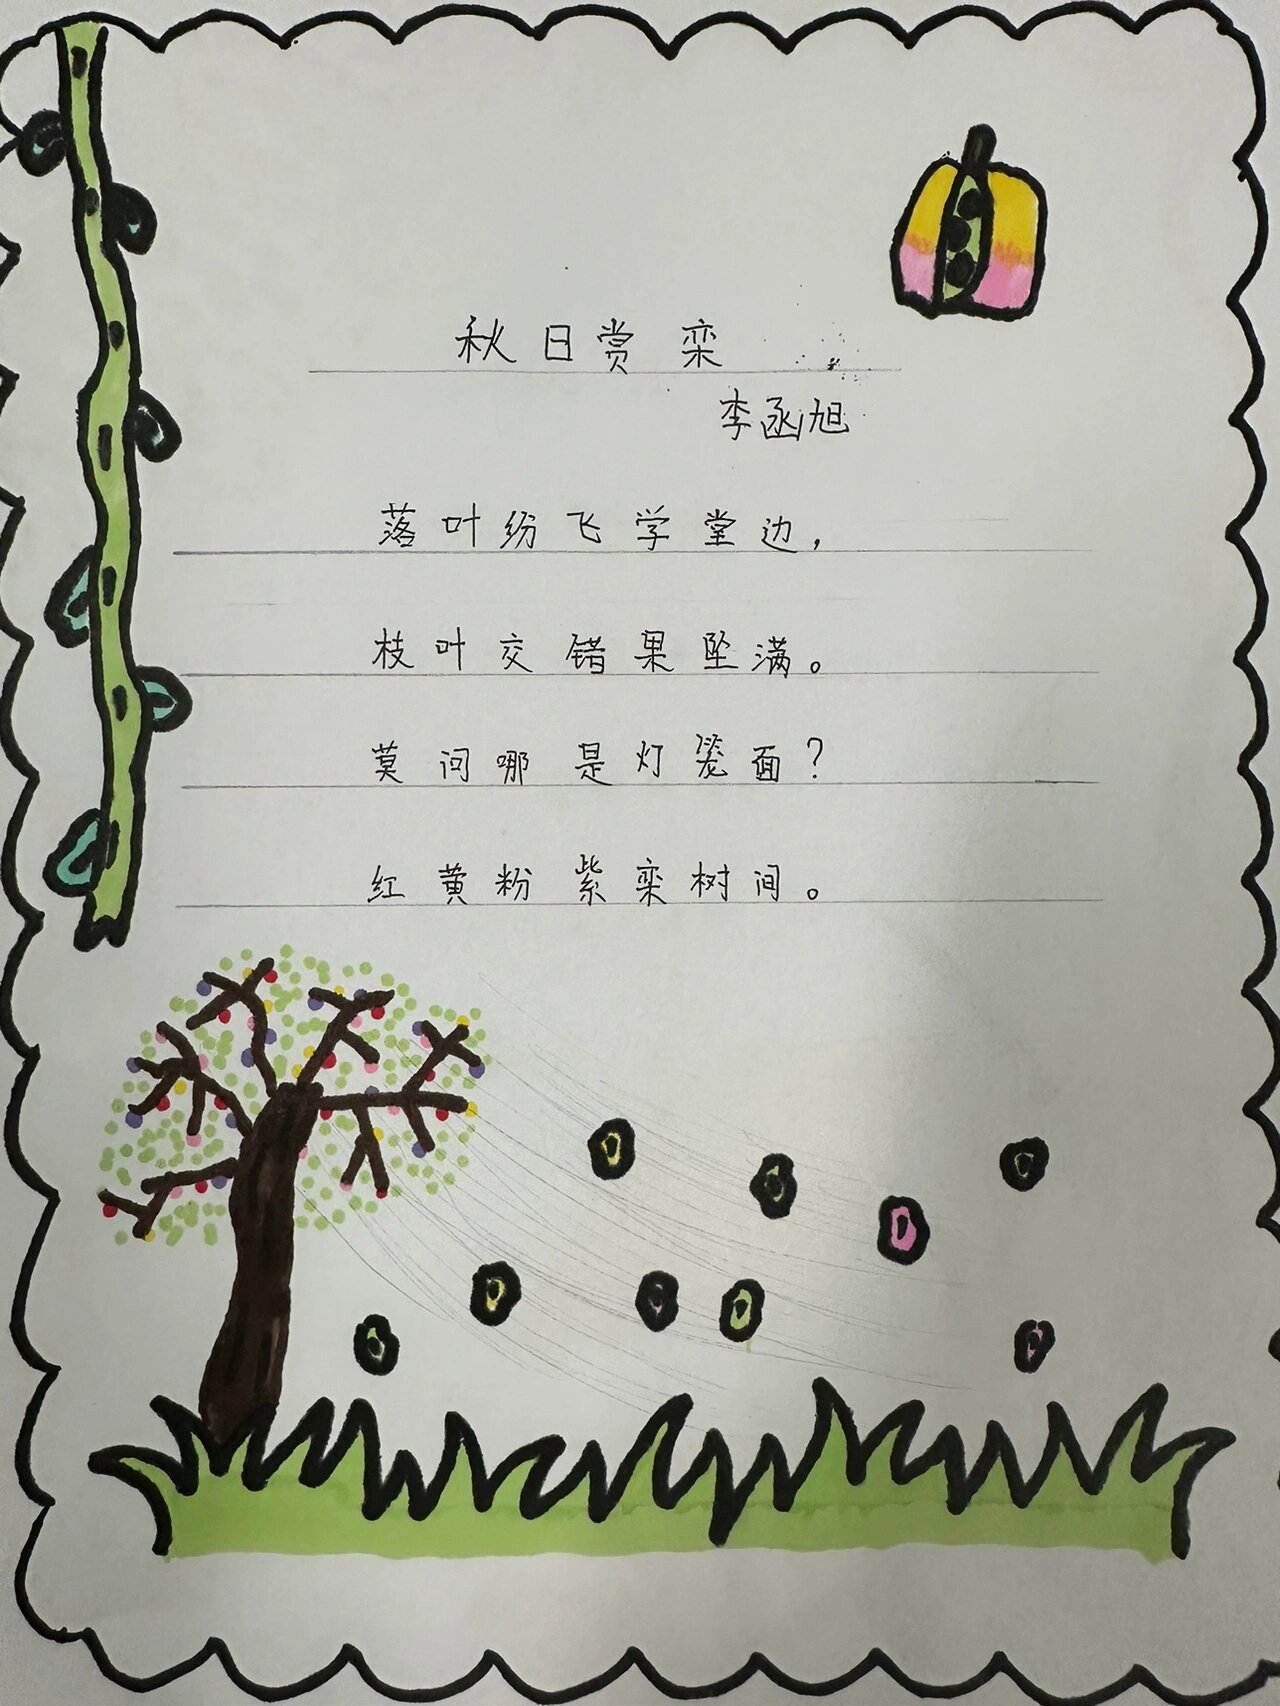 秋日赏栾
李丞旭
落叶纷飞学堂边，
枝叶交错果坠满。
莫问哪是灯笼面？
红黄粉紫栾树间。